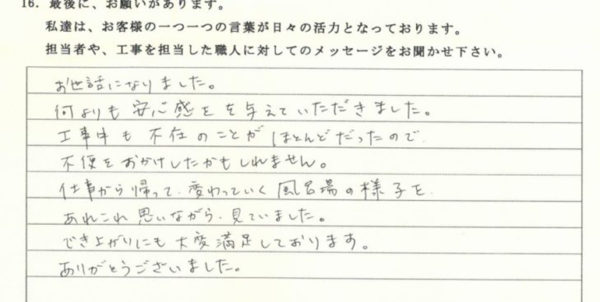 16. 最後に、お願いがあります。
私達は、お客様の一つ一つの言葉が日々の活力となっております。
担当者や、工事を担当した職人に対してのメッセージをお聞かせ下さい。
お世話になりました。
何よりも安心感をを与えていただきました。
工事中も不在のことがほとんどだったので
不便をおかけしたかもしれません。
仕事から帰って、変わっていく風呂場の様子を
あれこれ思いながら、見ていました。
でき上がりにも大変満足しております。
ありがとうございました。